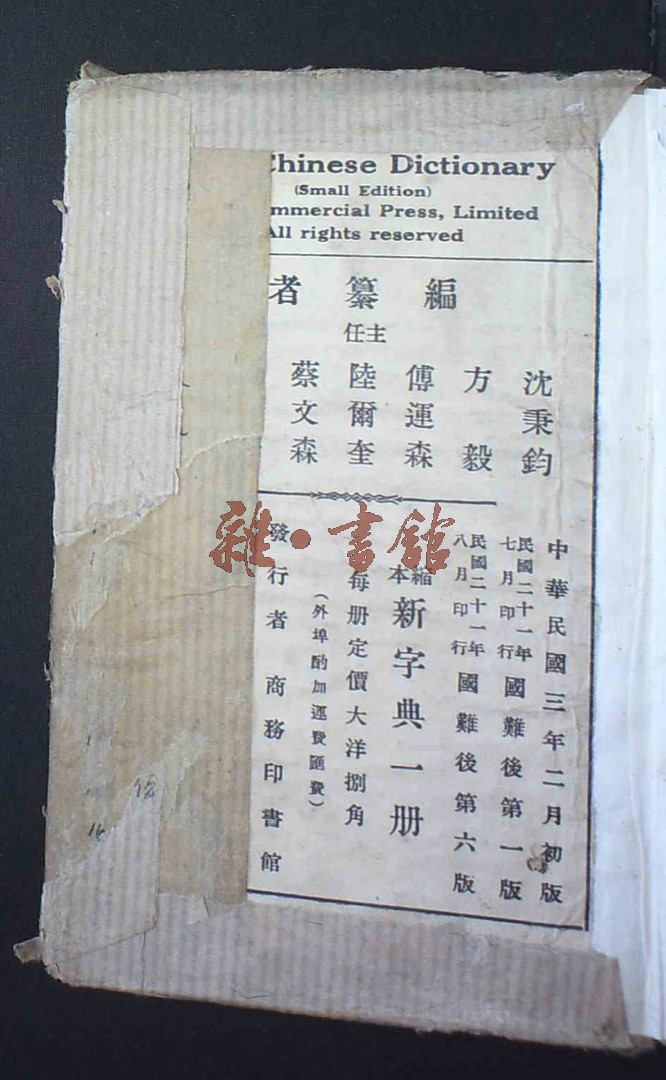 Chinese Dictionary
(Small Edition)
mmercial Press, Limited
All rights reserved
編纂者
主任
沈秉鈞
方毅
傅運森
陸爾奎
蔡文森
中華民國三年二月初版
民國二十一年七月印行國難後第一版
民國二十一年八月印行國難後第六版
縮本新字典一册
每册定價大洋捌角
(外埠酌加運費匯費)
發行者商務印書館
雜·書館